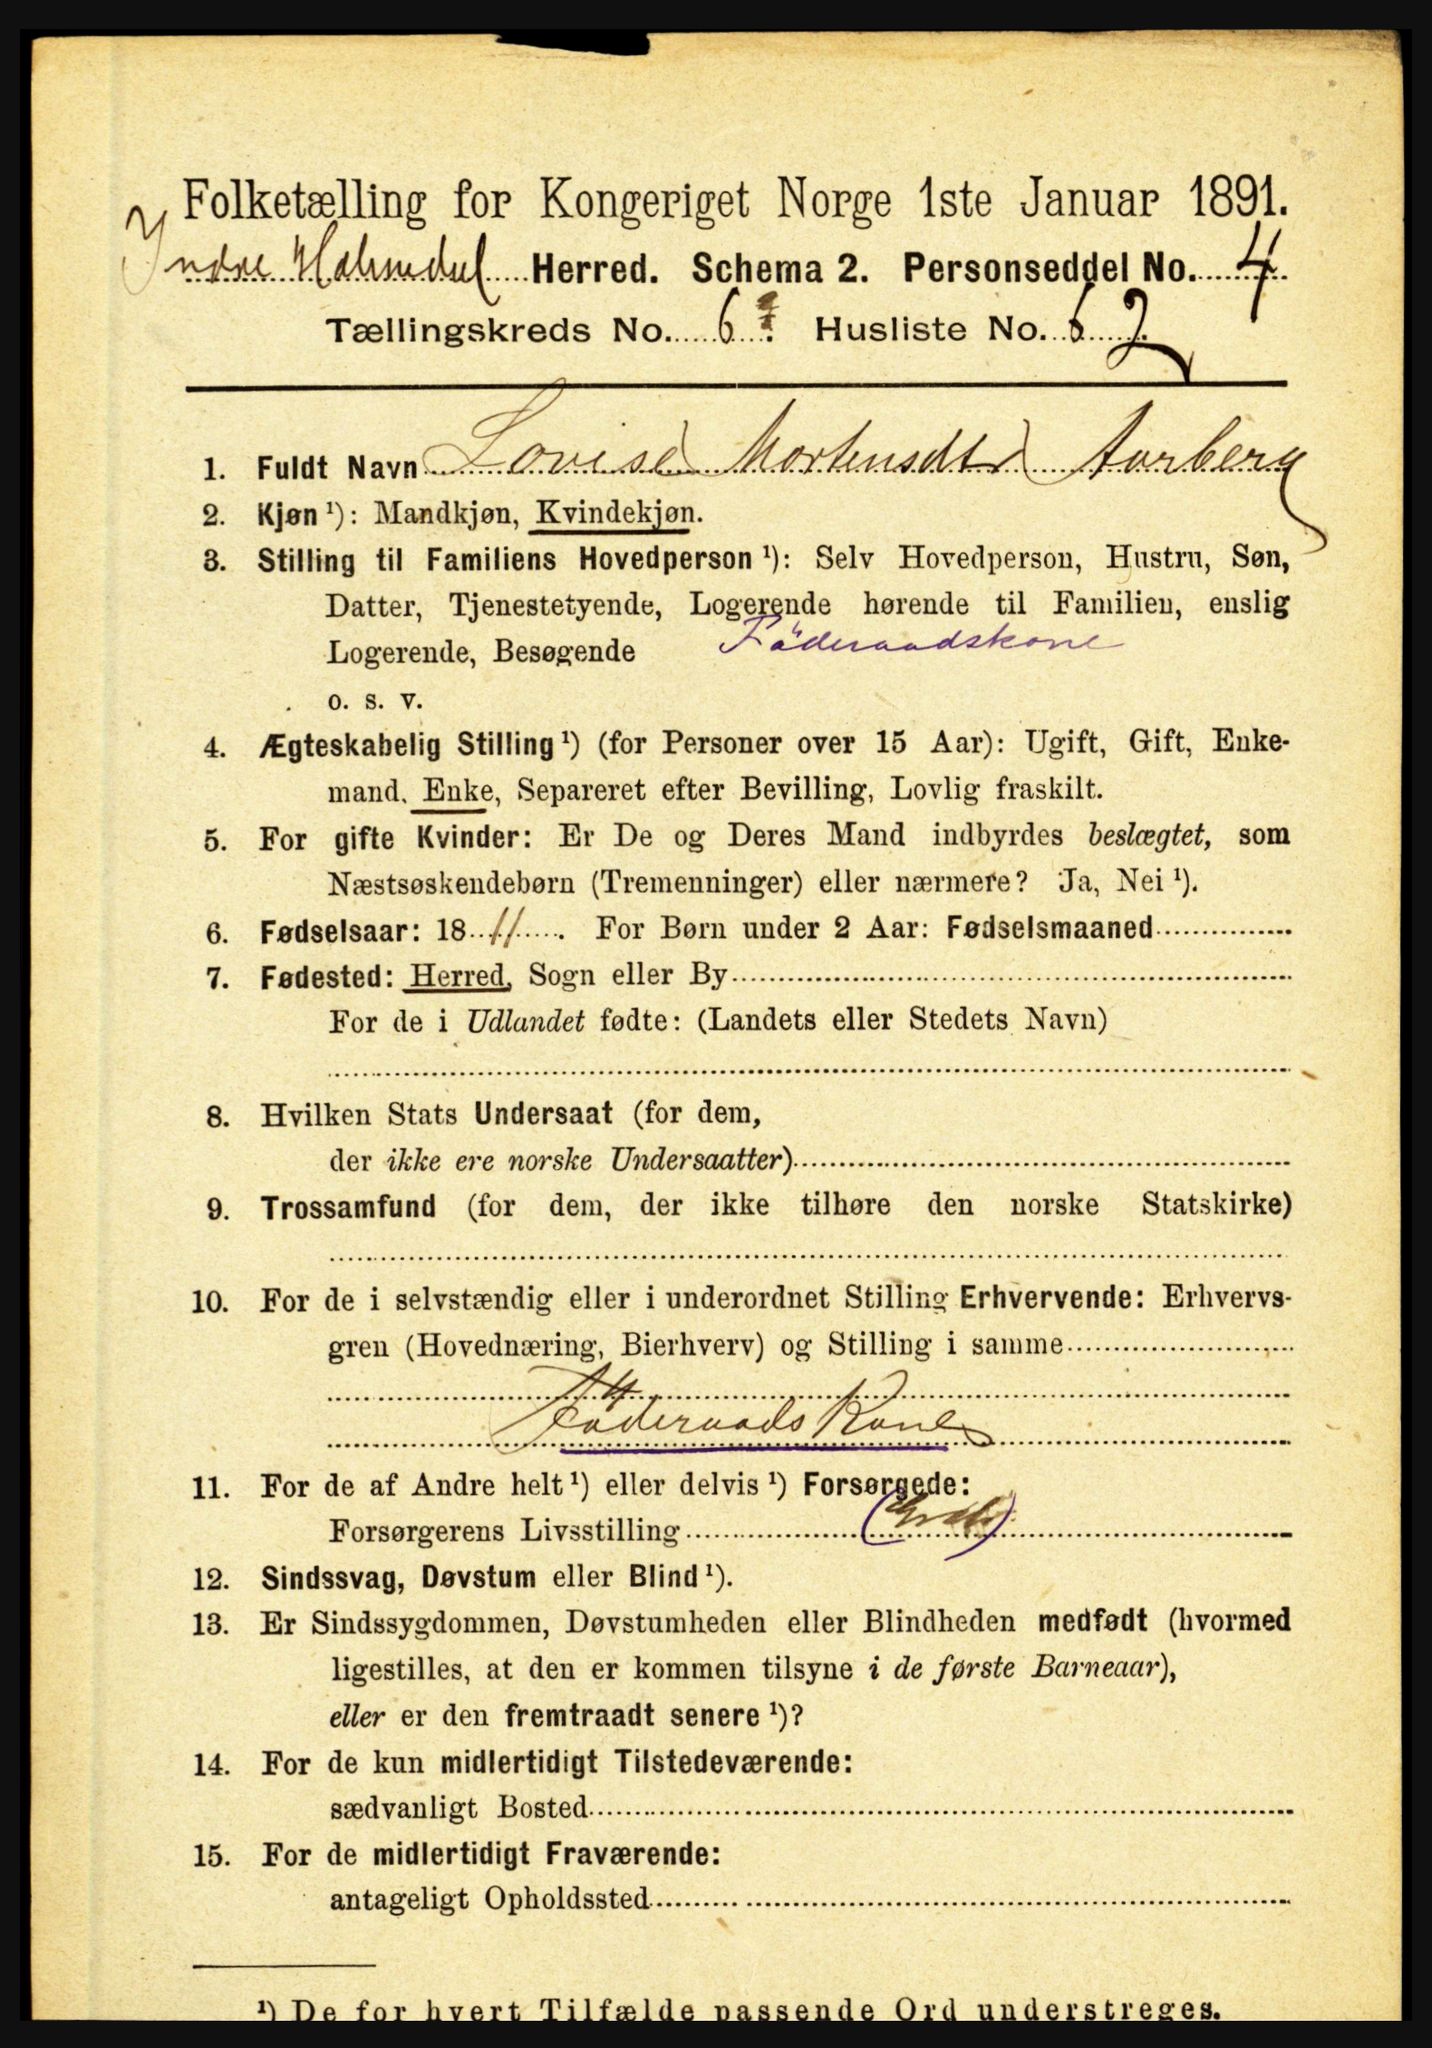 Folketælling for Kongeriget Norge 1ste Januar 1891.
Indre Holmedal Herred. Schema 2. Personseddel No. 4
Tællingskreds No. 6. Husliste No. 62
1. Fuldt Navn Lovise Mortensdtr Aarberg
2. Kjøn ¹): Mandkjøn, Kvindekjøn.
3. Stilling til Familiens Hovedperson ¹): Selv Hovedperson, Hustru, Søn,
Datter, Tjenestetyende, Logerende hørende til Familien, enslig
Logerende, Besøgende Föderaadskone
o. s. v.
4. Ægteskabelig Stilling ¹) (for Personer over 15 Aar): Ugift, Gift, Enke-
mand, Enke, Separeret efter Bevilling, Lovlig fraskilt.
5. For gifte Kvinder: Er De og Deres Mand indbyrdes beslægtet, som
Næstsøskendebørn (Tremenninger) eller nærmere? Ja, Nei ¹).
6. Fødselsaar: 1811. For Børn under 2 Aar: Fødselsmaaned
7. Fødested: Herred, Sogn eller By
For de i Udlandet fødte: (Landets eller Stedets Navn)
8. Hvilken Stats Undersaat (for dem,
der ikke ere norske Undersaatter)
9. Trossamfund (for dem, der ikke tilhøre den norske Statskirke)
10. For de i selvstændig eller i underordnet Stilling Erhvervende: Erhvervs-
gren (Hovednæring, Bierhverv) og Stilling i samme
Föderaads Kone
11. For de af Andre helt ¹) eller delvis ¹) Forsørgede:
Forsørgerens Livsstilling
12. Sindssvag, Døvstum eller Blind ¹).
13. Er Sindssygdommen, Døvstumheden eller Blindheden medfødt (hvormed
ligestilles, at den er kommen tilsyne i de første Barneaar),
eller er den fremtraadt senere ¹)?
14. For de kun midlertidigt Tilstedeværende:
sædvanligt Bosted
15. For de midlertidigt Fraværende:
antageligt Opholdssted
¹) De for hvert Tilfælde passende Ord understreges.